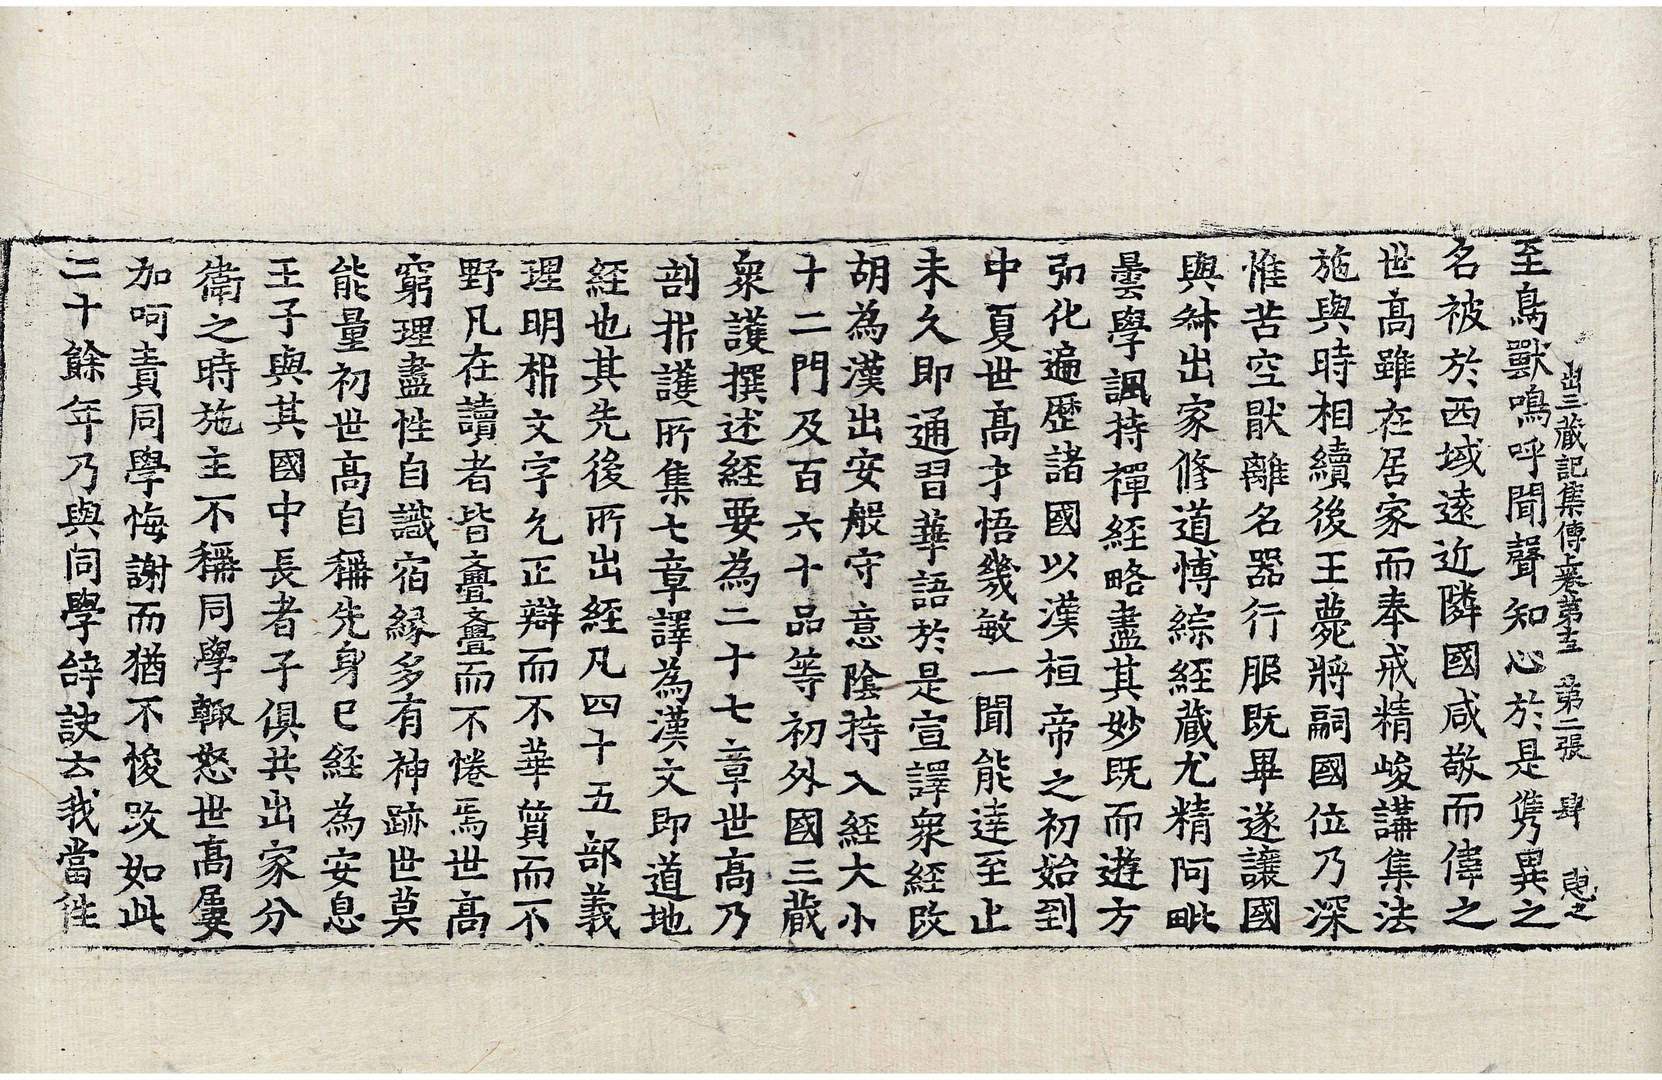 出三藏記集傳上卷第十三 第二張 肆
至鳥獸鳴呼聞聲知心於是儁異之
名被於西域遠近隣國咸敬而偉之
世高雖在居家而奉戒精峻講集法
施與時相續後王薨將嗣國位乃深
惟苦空猒離名器行服既畢遂讓國
與叔出家修道愽綜經藏尤精阿毗
曇學諷持禪經略盡其妙既而遊方
弘化遍歷諸國以漢桓帝之初始到
中夏世高才悟幾敏一聞能達至止
未久即通習華語於是宣譯衆經改
胡為漢出安般守意陰持入經大小
十二門及百六十品等初外國三藏
衆護撰述經要為二十七章世高乃
剖析護所集七章譯為漢文即道地
經也其先後所出經凡四十五部義
理明析文字允正辯而不華質而不
野凡在讀者皆亹亹而不惓焉世高
窮理盡性自識宿緣多有神跡世莫
能量初世高自稱先身已經為安息
王子與其國中長者子俱共出家分
衛之時施主不稱同學輙怒世高屢
加呵責同學悔謝而猶不悛改如此
二十餘年乃與同學辝訣云我當往